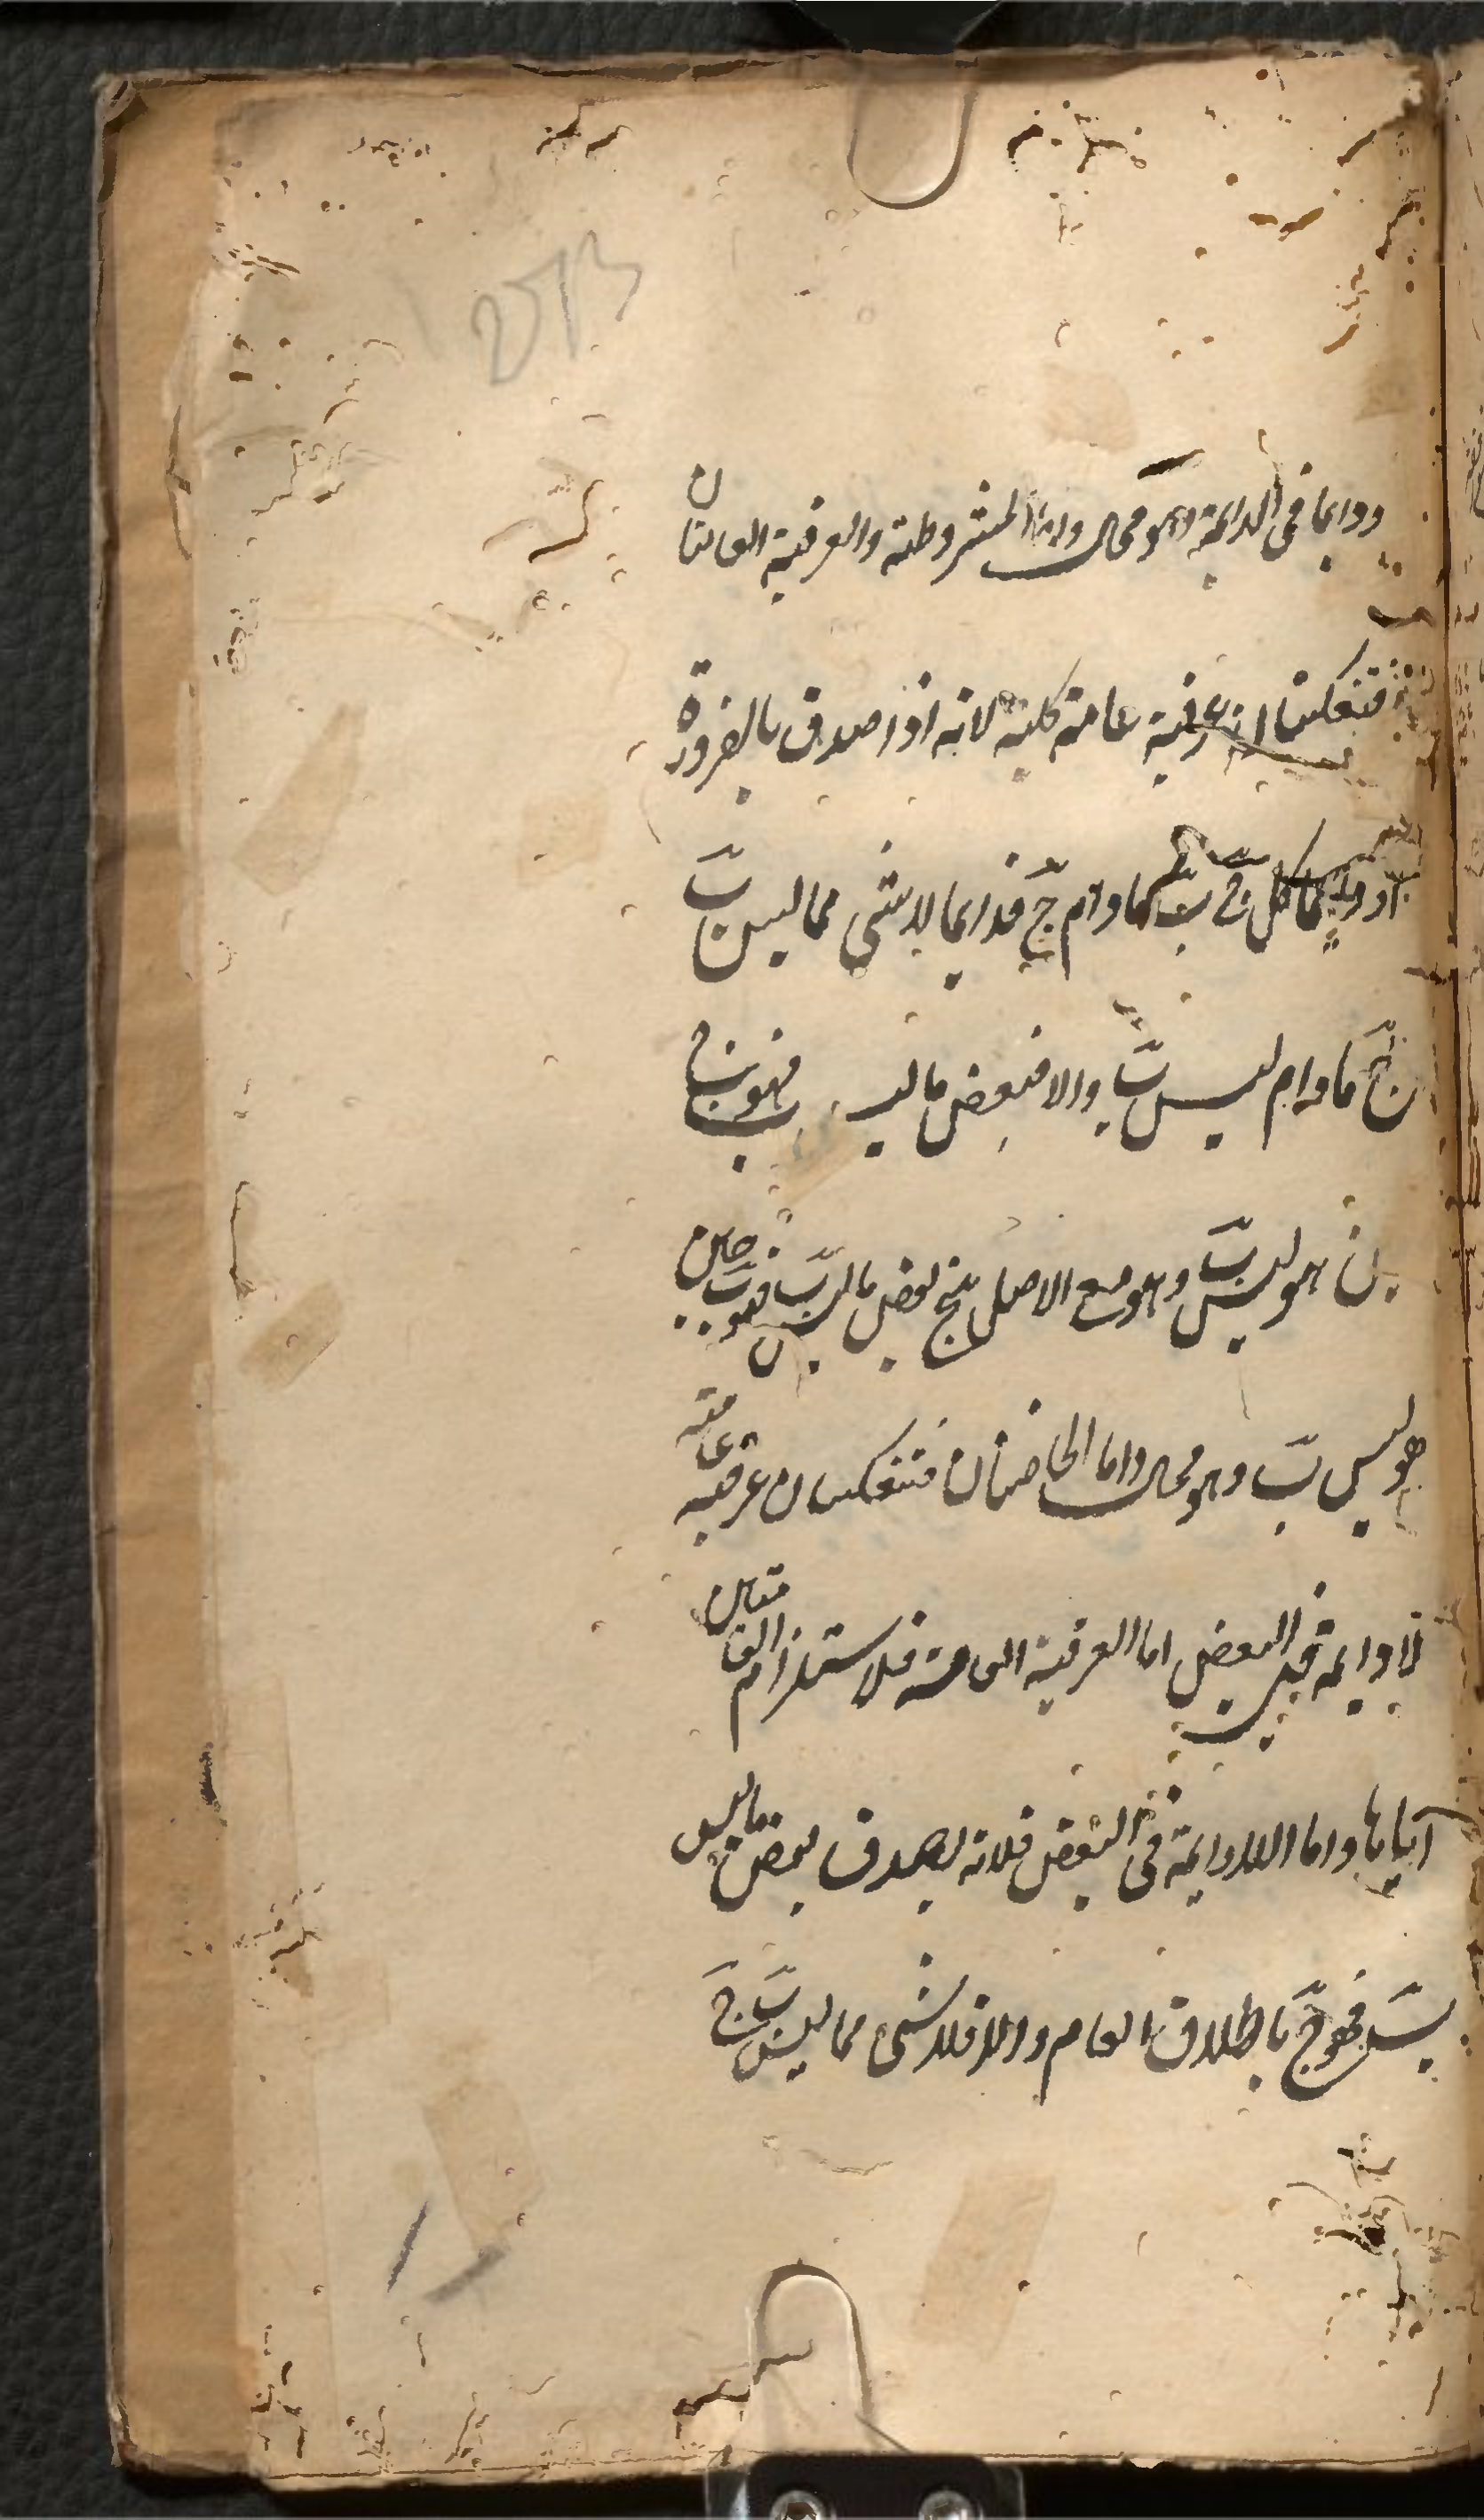 ودايما فى الدايمة وهو محال واما المشروطة والعرفية العامتان
فتنعكسان عرفية عامة كلية لانه اذا صدق بالضرورة
او دايما كل ج ب ما دام ج فدايما لا شى مما ليس ب
ج ما دام ليس ب والا فبعض ما ليس فهو ج
حين هو ليس ب وهو مع الاصل ينتج بعض ما ليس ب فهو ب حين
هو ليس ب وهو محال واما الخاصتان فتنعكسان عرفية عامة
لا دايمة فى البعض اما العرفية العامة فلاستلزام العامتين
اياها واما اللادايمة فى البعض فلانه يصدق بعض ما ليس
ب فهو ج باطلاق العام والا فلا شى مما ليس ب ج